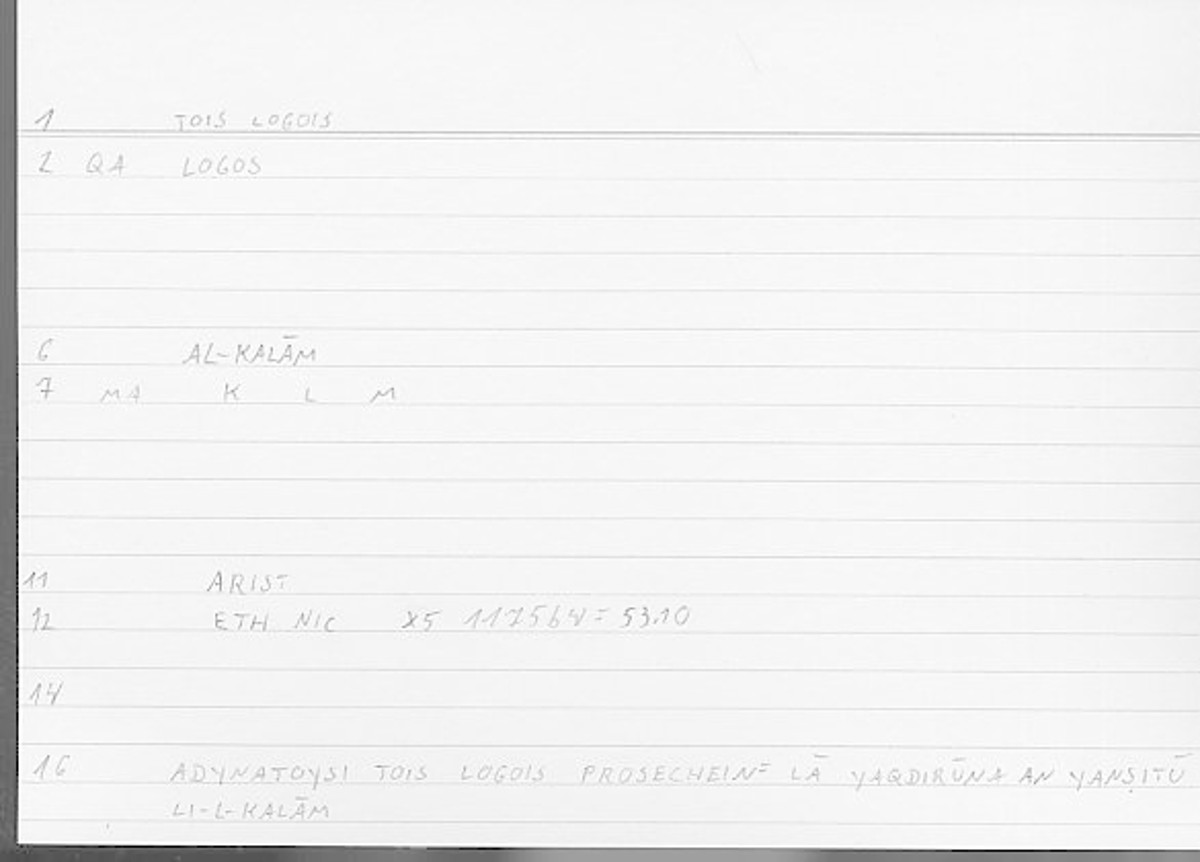 1 TOIS LOGOIS
2 QA LOGOS
6 AL-KALĀM
7 MA K L M
11 ARIST
12 ETH NIC X5 1175b4 = 53.10
14
16 ADYNATOYSI TOIS LOGOIS PROSECHEIN = LĀ YAQDIRŪNA AN YANṢITŪ
LI-L-KALĀM